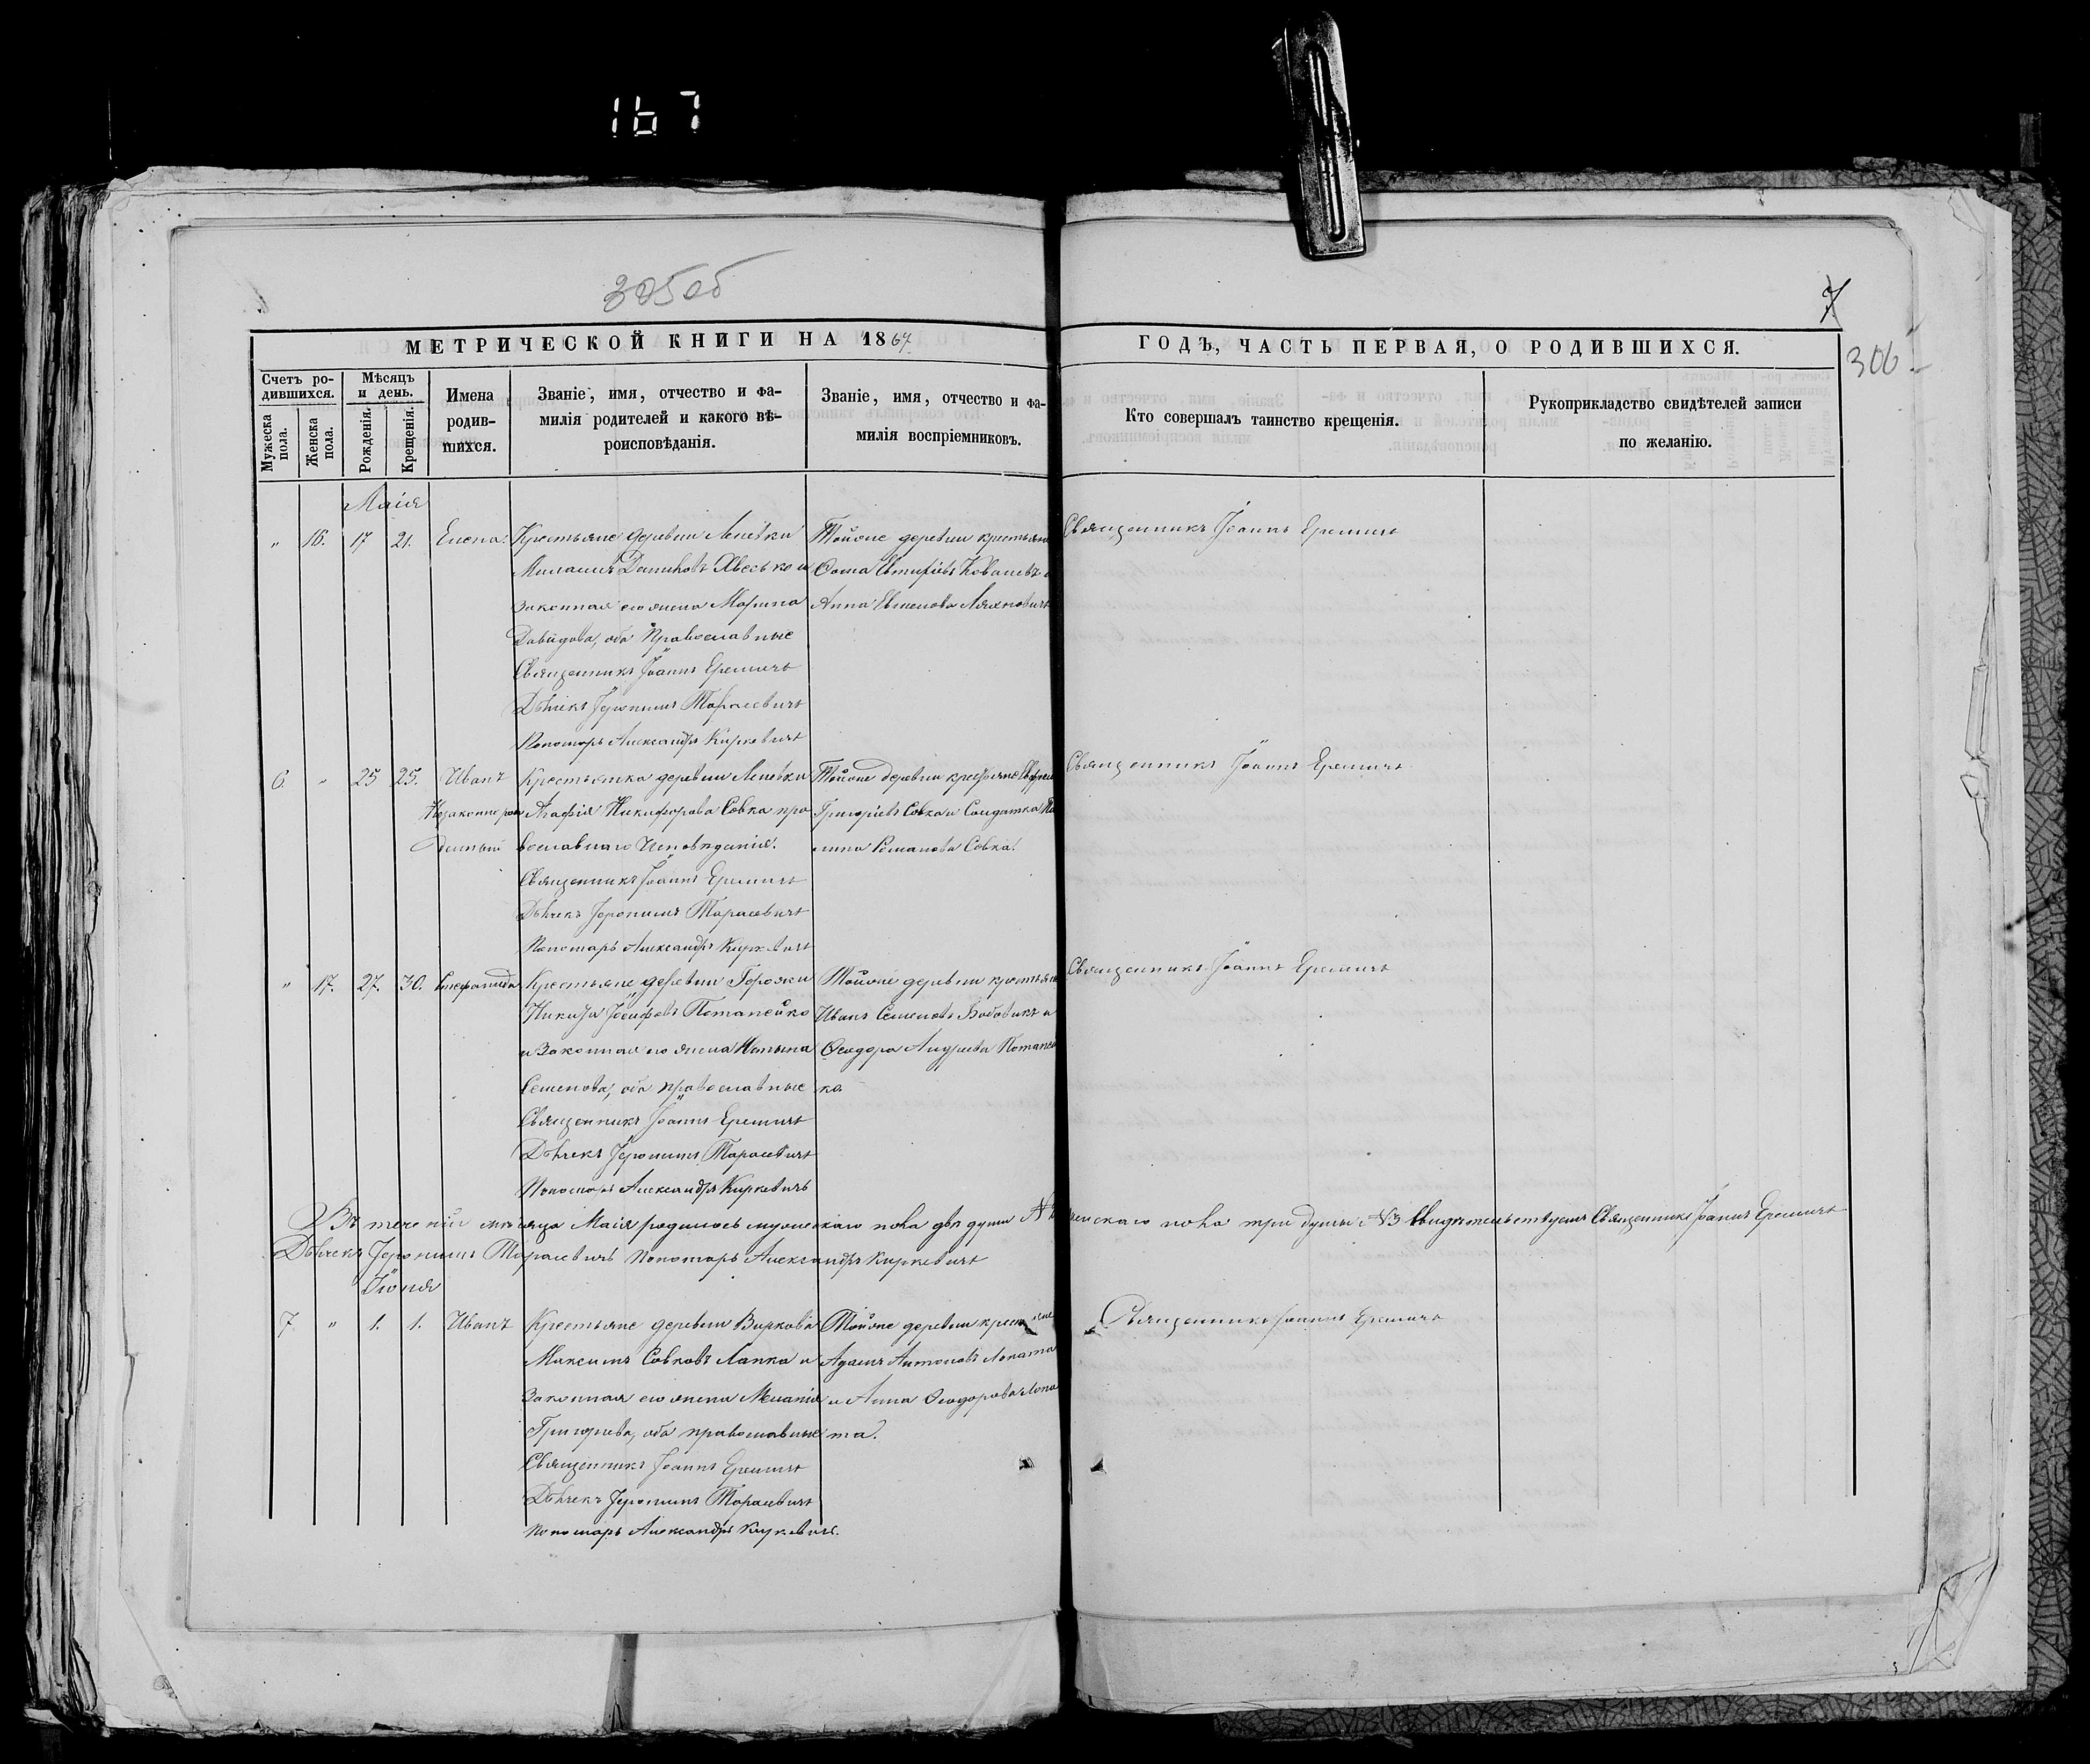 167
305об
7
306
МЕТРИЧЕСКОЙ КНИГИ НА 1867
ГОДЪ, ЧАСТЬ ПЕРВАЯ, О РОДИВШИХСЯ.
Счетъ ро-
дившихся.
Мужеска
пола.
Женска
пола.
Мѣсяцъ
и день.
Рожденія.
Крещенія.
Имена
родив-
шихся.
Званіе, имя, отчество и фа-
милія родителей и какого вѣ-
роисповѣданія.
Званіе, имя, отчество и фа-
милія воспріемниковъ.
Кто совершалъ таинство крещенія.
Рукоприкладство свидѣтелей записи
по желанію.
Маія
„ 16. 17 21. Елена. Крестьяне деревни Лепевки
Даниловъ и
законная его жена Марина
Давидова, оба Православные
Священникъ Іоаннъ Еремичъ
Дьячекъ Іеронимъ Тарасевичъ
Пономарь Александръ Киркевичъ
Тойже деревни крестьяне
Фома Ковалевъ и
Анна Ляхновичъ
Священникъ Іоаннъ Еремичъ
6. „ 25 25. Иванъ
Незаконнорож
денный
Крестьянка деревни Лепевки
Агафія Никифорова Совка пра
вославнаго Исповѣданія.
Священникъ Іоаннъ Еремичъ
Дьячекъ Іеронимъ Тарасевичъ
Пономарь Александръ Киркевичъ
Тойже деревни крестьяне
Григоріевъ Совка и Солдатка
Романова Совка.
Священникъ Іоаннъ Еремичъ
„ 17. 27. 30. Стефанида Крестьяне деревни Горожи
Никита Іосифовъ Потапейко
и Законная его жена
Семенова, оба православные
Священникъ Іоаннъ Еремичъ
Дьячекъ Іеронимъ Тарасевичъ
Пономарь Александръ Киркевичъ
Тойже деревни крестьяне
Иванъ Семеновъ Бобовикъ и
Феодора Андреева Потапей
ко.
Священникъ Іоаннъ Еремичъ
Въ теченіи мѣсяца Маія родилось мужескаго пола двѣ души № 2 женскаго пола три души №3 Свидѣтельствуемъ Священникъ Іоаннъ Еремичъ
Дьячекъ Іеронимъ Тарасевичъ Пономарь Александръ Киркевичъ
Іюня
7. „ 1. 1. Иванъ Крестьяне деревни Виркова
Максимъ Савковъ Лапка и
Законная его жена Меланія
Григорьева, оба православные
Священникъ Іоаннъ Еремичъ
Дьячекъ Іеронимъ Тарасевичъ
Пономарь Александръ Киркевичъ.
Тойже деревни крестьяне
Адамъ Антоновъ Лопата
и Анна Феодорова Лопа
та.
Священникъ Іоаннъ Еремичъ